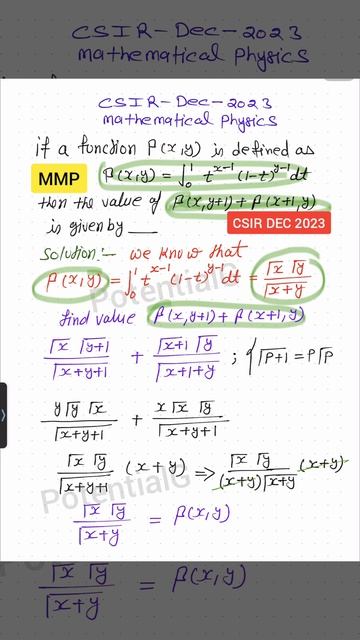 CSIR-Dec-2023
mathematical Physics
CSIR-Dec-2023
mathematical Physics
if a function β(x,y) is defined as
MMP
β(x,y) = ∫₀¹ t^{x-1} (1-t)^{y-1} dt
then the value of β(x,y+1) + β(x+1,y)
is given by ___
CSIR DEC 2023
Solution:- we know that
β(x,y) = ∫₀¹ t^{x-1} (1-t)^{y-1} dt = Γx Γy / Γx+y
find value β(x,y+1) + β(x+1,y)
Γx Γy+1 / Γx+y+1 + Γx+1 Γy / Γx+1+y ; { Γp+1 = pΓp
yΓy Γx / Γx+y+1 + xΓx Γy / Γx+y+1
Γx Γy / Γx+y+1 (x+y) => Γx Γy / (x+y)Γx+y (x+y)
PotentialG
Γx Γy / Γx+y = β(x,y)
Γx Γy / Γx+y = β(x,y)